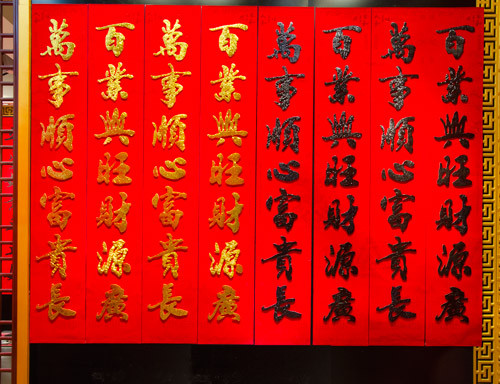 百業興旺財源廣
萬事順心富貴長
百業興旺財源廣
萬事順心富貴長
百業興旺財源廣
萬事順心富貴長
百業興旺財源廣
萬事順心富貴長